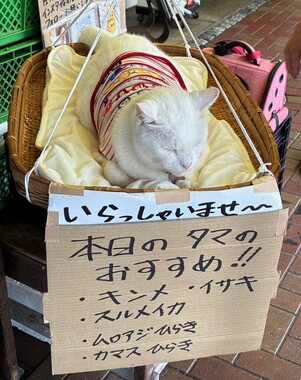 いらっしゃいませ〜
本日の タマの
おすすめ!!
・キンメ ・イサキ
・スルメイカ
・ムロアジひらき
・カマスひらき